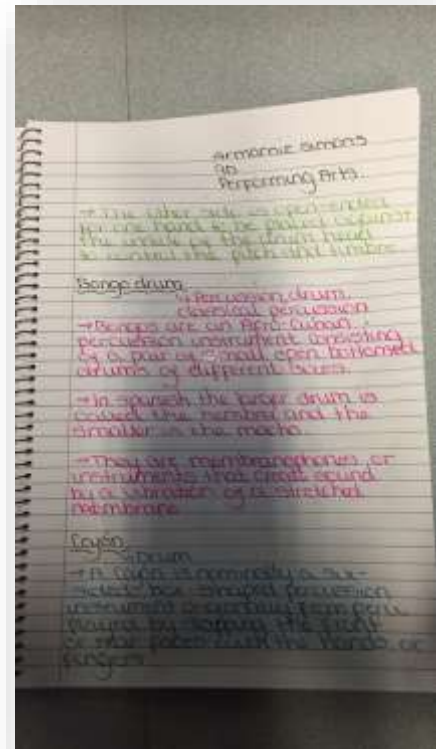 Armarnie Simons
9D
Performing Arts.
→ The other side is open-ended
for one hand to be placed against
the inside of the drum head
to control the pitch and timbre
Bongo drum
↳ Percussion, drum,
classical percussion
→ Bongos are an Afro-Cuban
percussion instrument consisting
of a pair of small, open bottomed
drums of different sizes.
→ In Spanish the larger drum is
called the hembra and the
smaller is the macho.
→ They are membranophones, or
instruments that creat sound
by a vibration of a stretched
membrane
Cajón
↳ Drum
→ A Cajon is nominally a six-
sided, box-shaped percussion
instrument originally from Peru
played by slapping the front
or rear faces with the hands, or
fingers